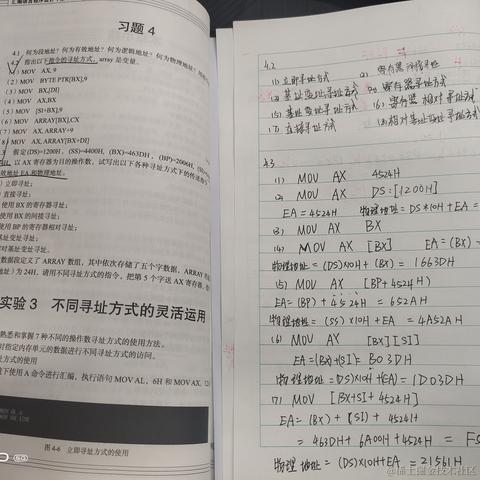 汇编语言程序设计
习题 4
4.1 何为段地址？何为有效地址？何为逻辑地址？何为物理地址？
4.2 指出以下指令的寻址方式，array 是变量。
(1) MOV AX, 9
(2) MOV BYTE PTR[BX],9
(3) MOV BX,[DI]
(4) MOV AX,BX
(5) MOV [SI+BX],9
(6) MOV ARRAY[BX],CX
(7) MOV AX, ARRAY+9
(8) MOV AX, ARRAY[BX+DI]
假定(DS)=1200H, (SS)=4400H, (BX)=463DH, (BP)=2006H,
以 AX 寄存器为目的操作数，试写出以下各种寻址方式下的传送指
效地址 EA 和物理地址。
立即寻址；
直接寻址；
使用 BX 的寄存器寻址；
使用 BX 的间接寻址；
使用 BP 的寄存器相对寻址；
基址变址寻址；
对基址变址寻址。
数据段定义了 ARRAY 数组，其中依次存储了五个字数据，ARRAY 的
地址）为 24H，请用不同寻址方式的指令，把第 5 个字送 AX 寄存器，
实验 3 不同寻址方式的灵活运用
熟悉和掌握 7 种不同的操作数寻址方式的使用方法。
对指定内存单元的数据进行不同寻址方式的访问。
址方式的使用
下使用 A 命令进行汇编，执行语句 MOV AL，6H 和 MOV AX，
图 4-6 立即寻址方式的使用
4.2
(1) 立即寻址方式
(2) 寄存器间接寻址
寄存器寻址方式
(5) 基址变址寻址方式 (6) 寄存器相对寻址方式
(7) 直接寻址方式 (8) 相对基址变址寻址方式
4.3
(1) MOV AX 4524H
(2) MOV AX DS:[1200H]
EA = 4524H 物理地址 = DS*10H + EA =
(3) MOV AX BX
(4) MOV AX [BX] EA = (BX) =
物理地址 = (DS)×10H + (BX) = 1663DH
(5) MOV AX [BP+4524H]
EA = (BP) + 4524H = 652AH
物理地址 = (SS)×10H + EA = 4A52AH
(6) MOV AX [BX][SI]
EA = (BX) + (SI) = B03DH
物理地址 = (DS)×10H + (EA) = 1D03DH
(7) MOV [BX+SI+4524H]
EA = (BX) + (SI) + 4524H
= 463DH + 6A00H + 4524H =
物理地址 = (DS)×10H + EA = 21561H
@稀土掘金技术社区